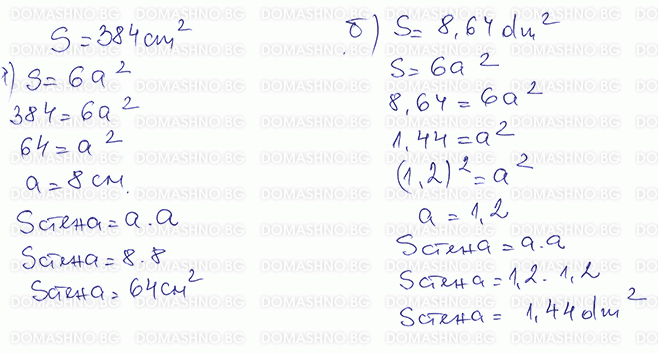 S = 384 cm²
а) S = 6a²
384 = 6a²
64 = a²
a = 8 см.
Sстена = a . a
Sстена = 8 . 8
Sстена = 64 см²
б) S = 8,64 dm²
S = 6a²
8,64 = 6a²
1,44 = a²
(1,2)² = a²
a = 1,2
Sстена = a . a
Sстена = 1,2 . 1,2
Sстена = 1,44 dm²
DOMASHNO.BG